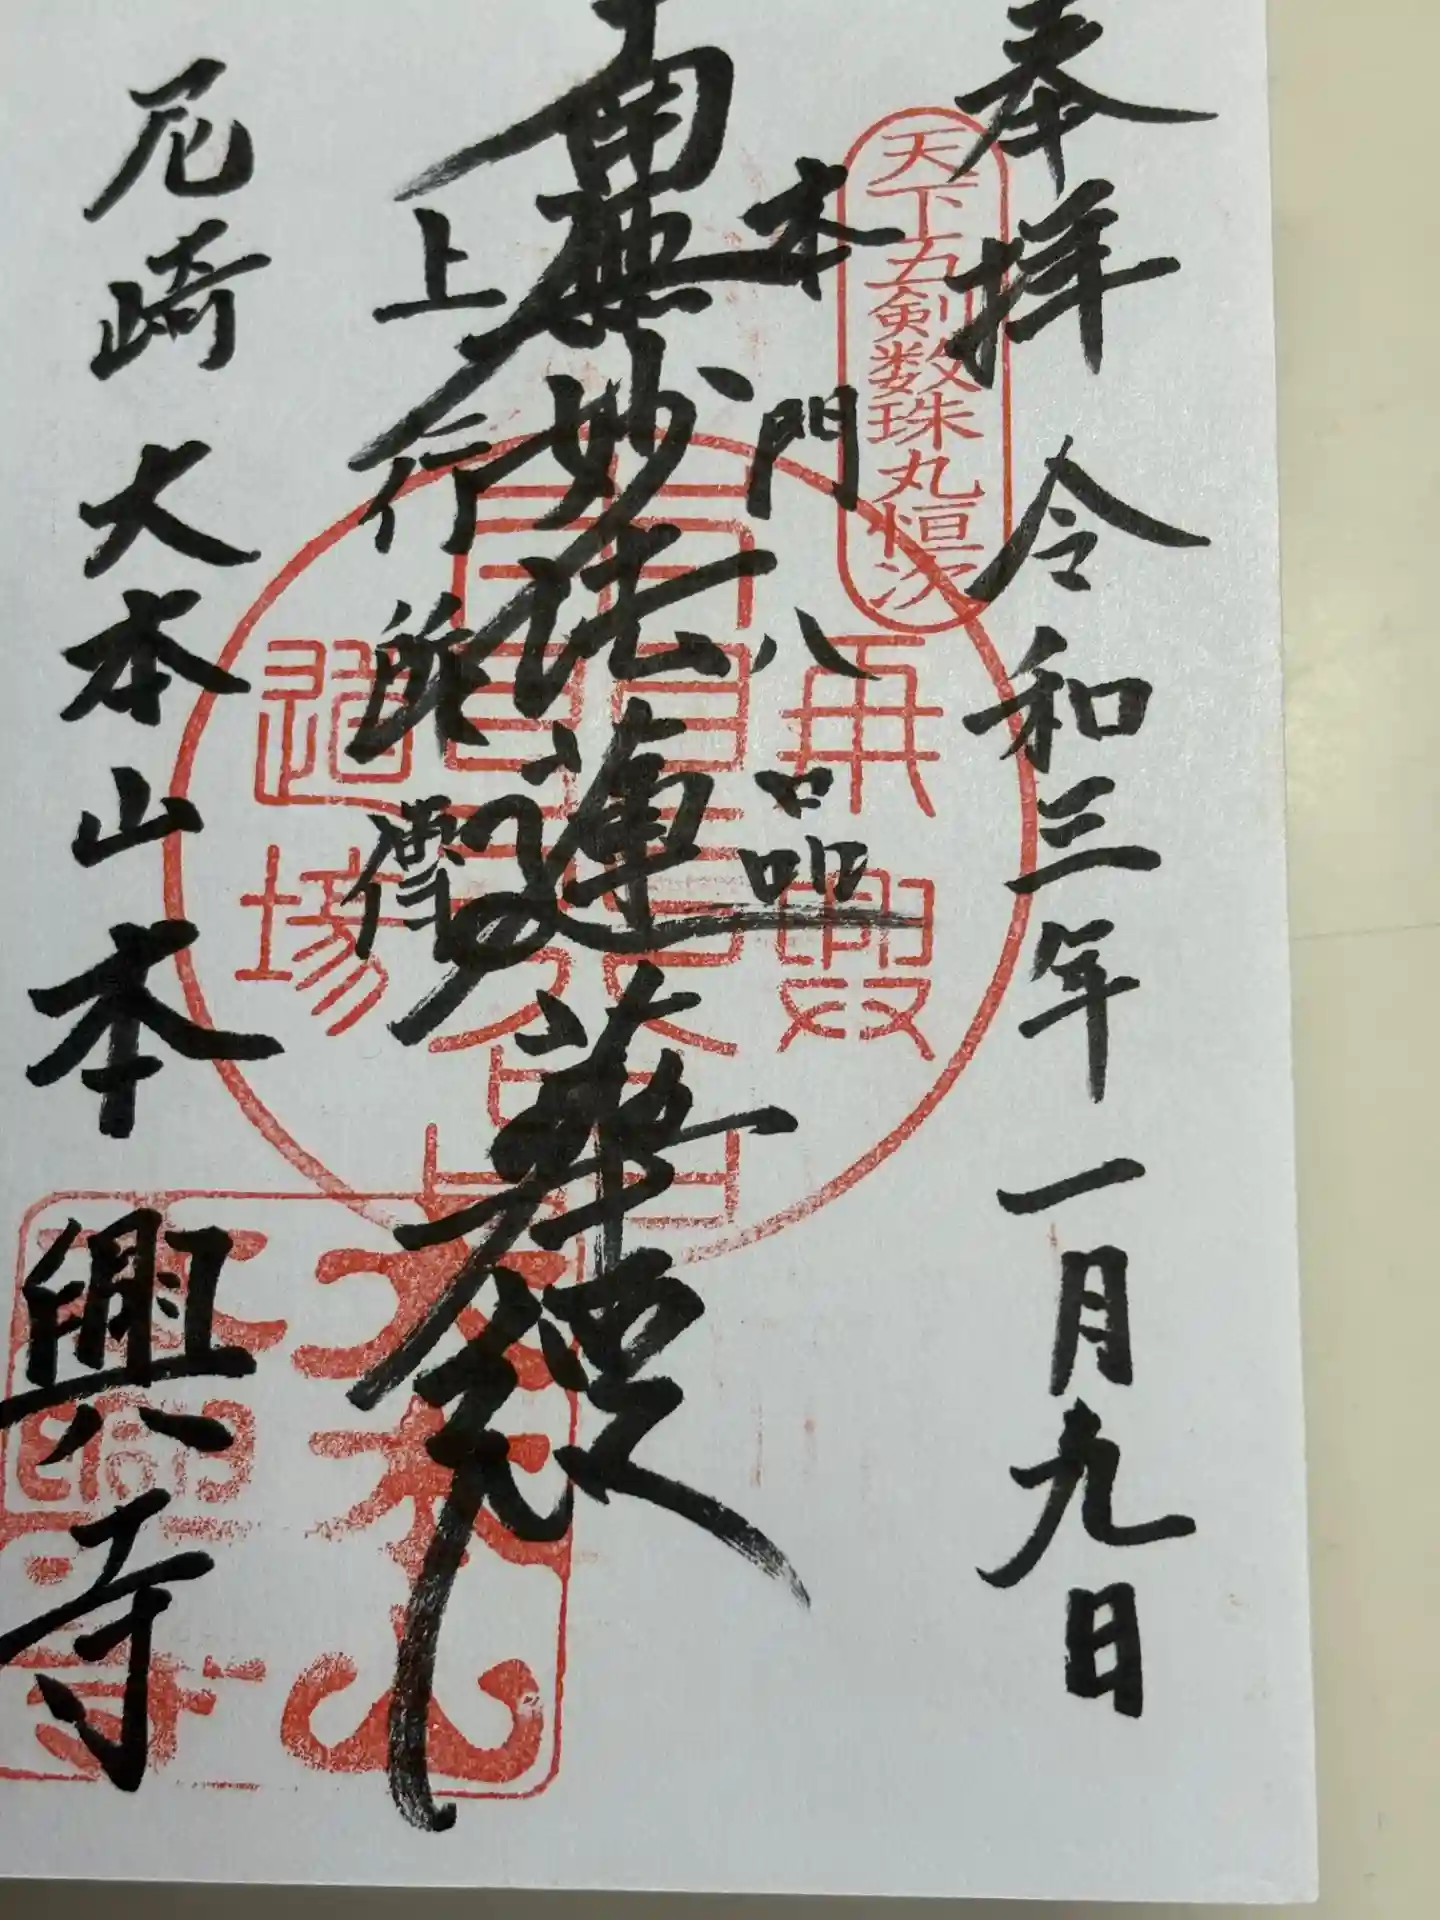 奉拝 令和三年一月九日
天下五剣数珠丸恒次
本門八品
南無妙法蓮華経
上行所傳
再興
道場
尼崎 大本山本興寺
大本山
本興寺